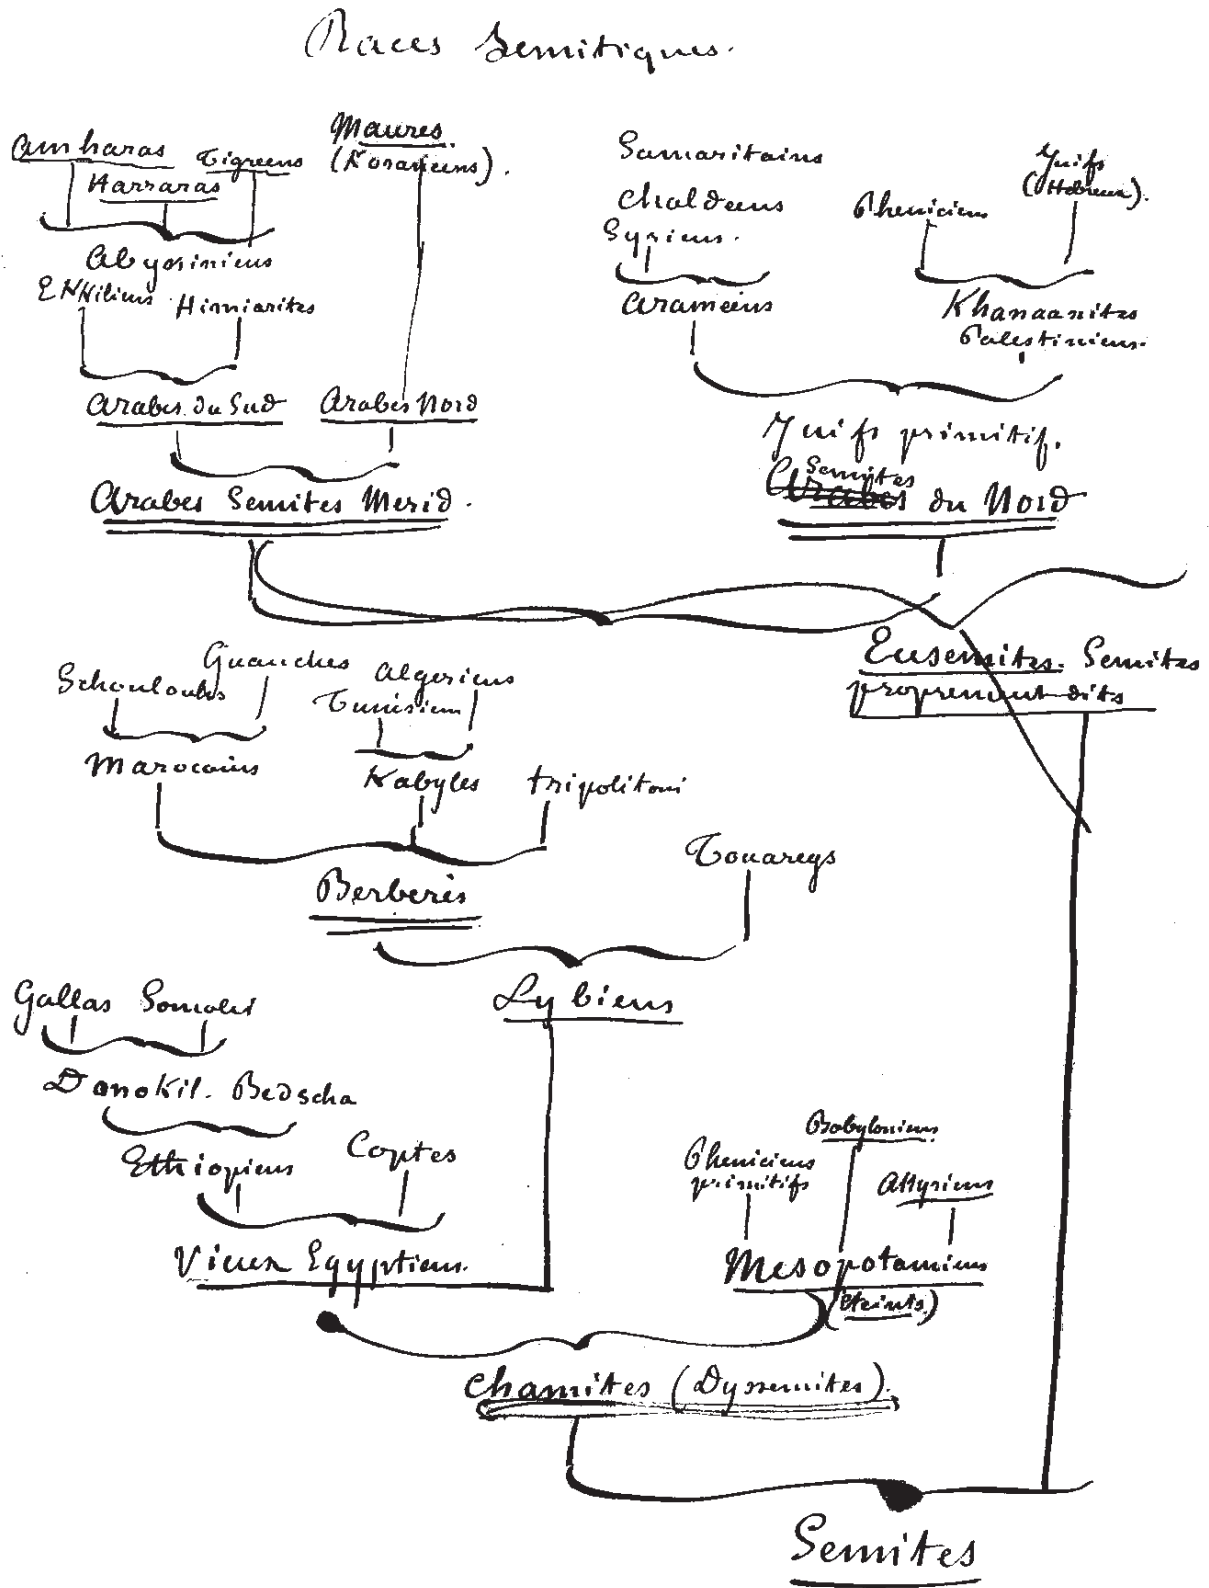 Races Semitiques.
Amharas
Tigreens
Harraras
Maures.
(Koraneens).
Abyssiniens
EKkiliens Himiarites
Arabes du Sud Arabes Nord
Arabes Semites Merid.
Samaritains
Chaldeens
Syriens.
Arameens
Pheniciens
Juifs
(Hebreux).
Khanaanites
Palestiniens.
Juifs primitif.
Semites
Arabes du Nord
Eusemites. Semites
proprement dits
Schouloubs
Guanches
Algeriens
Tunisiens
Marocains
Kabyles
tripolitani
Touaregs
Berberes
Lybiens
Gallas Somalis
Danokil. Bedscha
Ethiopiens
Coptes
Vieux Egyptiens.
Babyloniens
Pheniciens
primitifs
Assyriens
Mesopotamiens
(Eteints)
Chamites (Dyssemites).
Semites